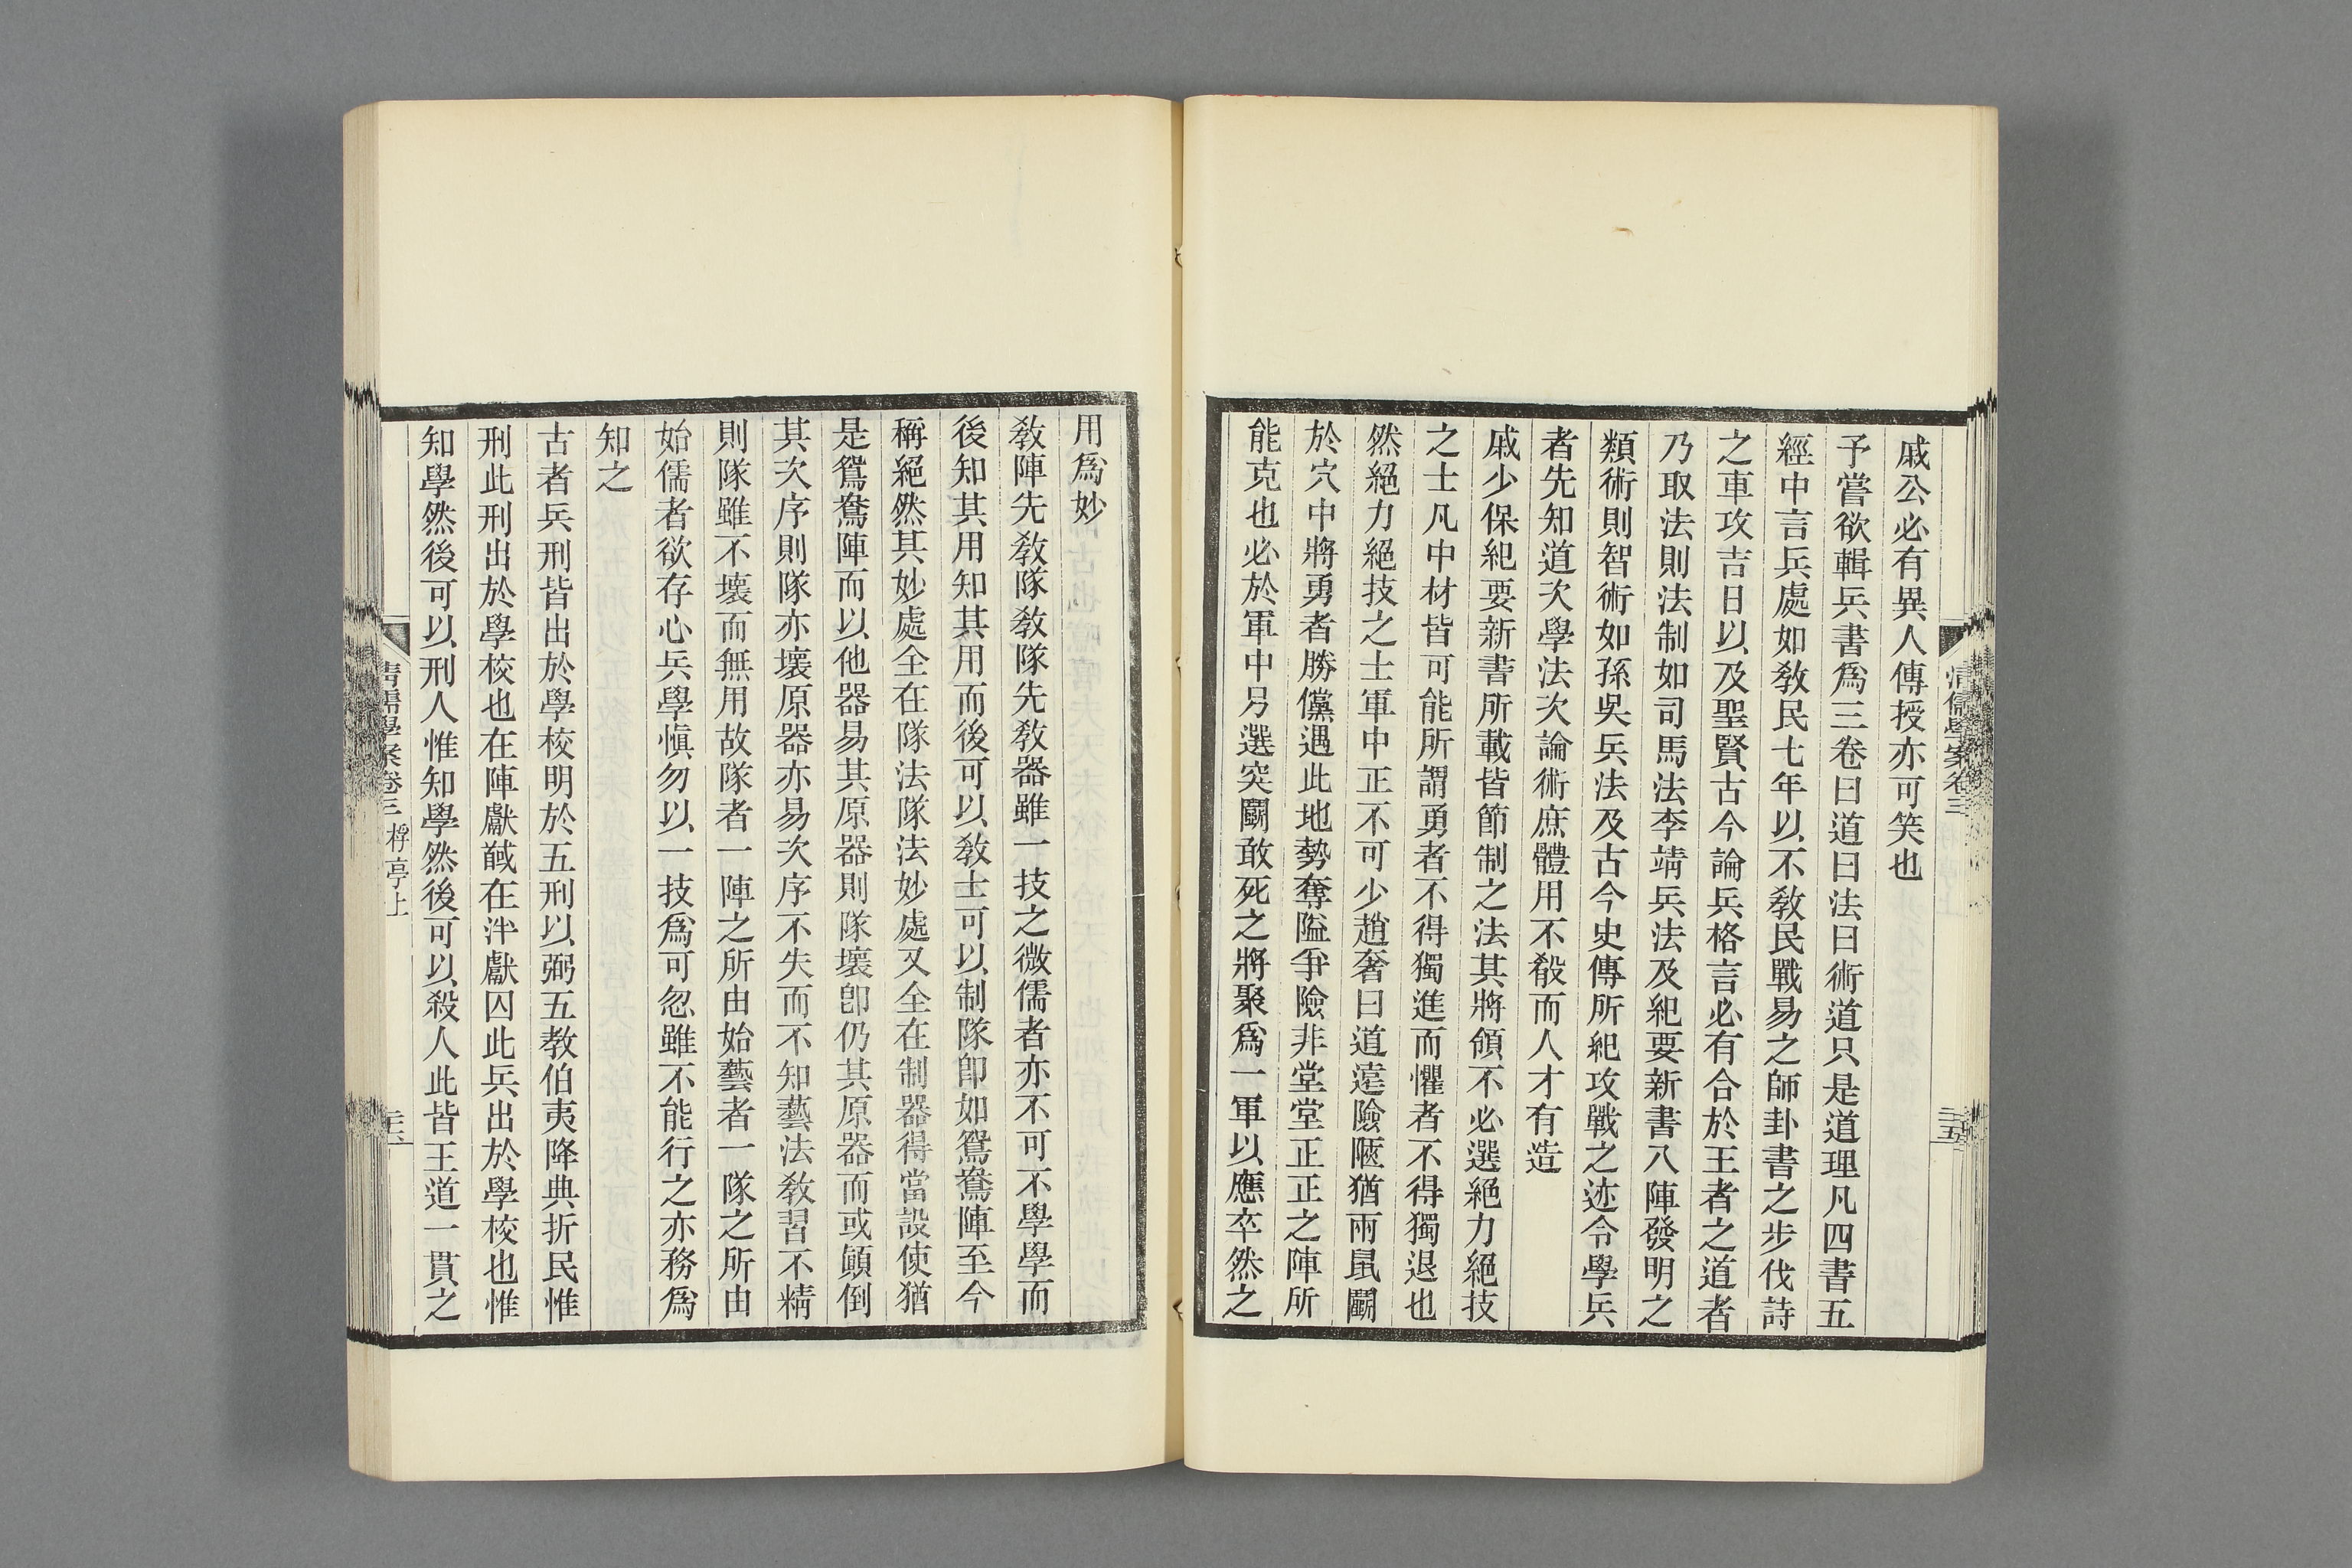 戚公必有異人傳授亦可笑也
予嘗欲輯兵書爲三卷曰道曰法曰術道只是道理凡四書五
經中言兵處如敎民七年以不敎民戰易之師卦書之步伐詩
之車攻吉日以及聖賢古今論兵格言必有合於王者之道者
乃取法則法制如司馬法李靖兵法及紀要新書八陣發明之
類術則智術如孫吳兵法及古今史傳所紀攻戰之迹令學兵
者先知道次學法次論術庶體用不殽而人才有造
戚少保紀要新書所載皆節制之法其將領不必選絕力絕技
之士凡中材皆可能所謂勇者不得獨進而懼者不得獨退也
然絕力絕技之士軍中正不可少趙奢曰道遠險陿猶兩鼠鬬
於穴中將勇者勝儻遇此地勢奪隘爭險非堂堂正正之陣所
能克也必於軍中另選突鬬敢死之將聚爲一軍以應卒然之
清儒學案卷三
三五
用爲妙
敎陣先敎隊敎隊先敎器雖一技之微儒者亦不可不學學而
後知其用知其用而後可以敎士可以制隊卽如鴛鴦陣至今
稱絕然其妙處全在隊法隊法妙處又全在制器得當設使猶
是鴛鴦陣而以他器易其原器則隊壞卽仍其原器而或顚倒
其次序則隊亦壞原器亦易次序不失而不知藝法敎習不精
則隊雖不壞而無用故隊者一陣之所由始藝者一隊之所由
始儒者欲存心兵學愼勿以一技爲可忽雖不能行之亦務爲
知之
古者兵刑皆出於學校明於五刑以弼五教伯夷降典折民惟
刑此刑出於學校也在陣獻馘在泮獻囚此兵出於學校也惟
知學然後可以刑人惟知學然後可以殺人此皆王道一貫之
清儒學案卷三 桴亭上